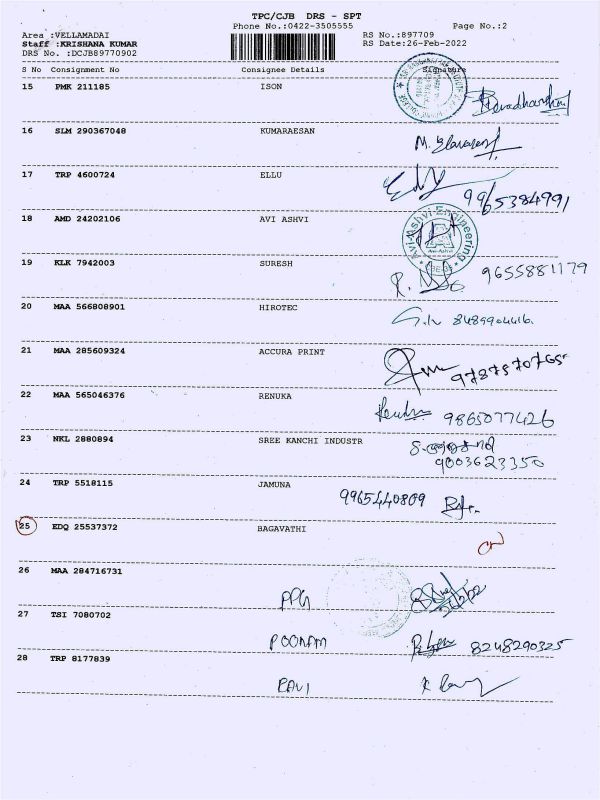 TPC/CJB DRS - SPT
Phone No.:0422-3505555 Page No.:2
Area :VELLAMADAI RS No.:897709
Staff :KRISHANA KUMAR RS Date:26-Feb-2022
DRS No. :DCJB89770902
S No Consignment No Consignee Details Signature
15 PMK 211185 ISON
16 SLM 290367048 KUMARAESAN
17 TRP 4600724 ELLU
9965384991
18 AMD 24202106 AVI ASHVI
Avi-Ashvi Engineering
19 KLK 7942003 SURESH 9655881179
20 MAA 566808901 HIROTEC
8489904416.
21 MAA 285609324 ACCURA PRINT
22 MAA 565046376 RENUKA
9865077426
23 NKL 2880894 SREE KANCHI INDUSTR
9003623350
24 TRP 5518115 JAMUNA
9965440809
25 EDQ 25537372 BAGAVATHI
26 MAA 284716731
PPG
27 TSI 7080702
POONAM 8248290325
28 TRP 8177839
RAVI